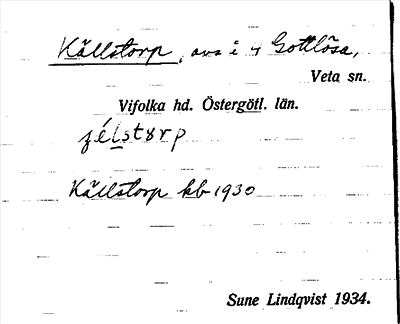 Källstorp, avs i 4 Gottlösa,
Veta sn.
Vifolka hd. Östergötl. län.
jélstɤrp
Källstorp kb 1930
Sune Lindqvist 1934.